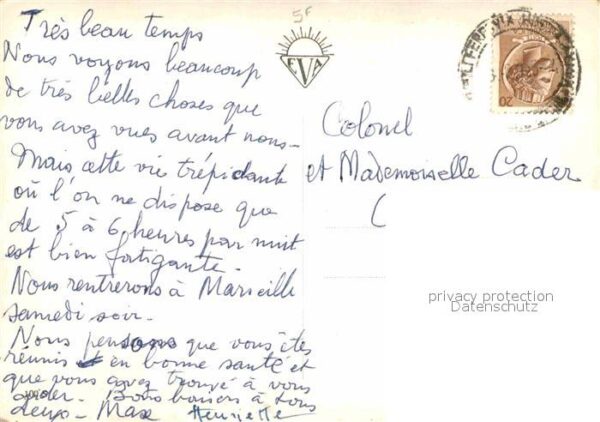 Très beau temps
Nous voyons beaucoup
de très belles choses que
vous avez vues avant nous -
Mais cette vie trépidante
où l'on ne dispose que
de 5 à 6 heures par nuit
est bien fatigante.
Nous rentrerons à Marseille
samedi soir -
Nous pensons que vous êtes
réunis et en bonne santé et
que vous avez trouvé à vous
Bons baisers à tous
deux - Max Henriette
5F
EVA
20
Colonel
et Mademoiselle Cader
privacy protection
Datenschutz